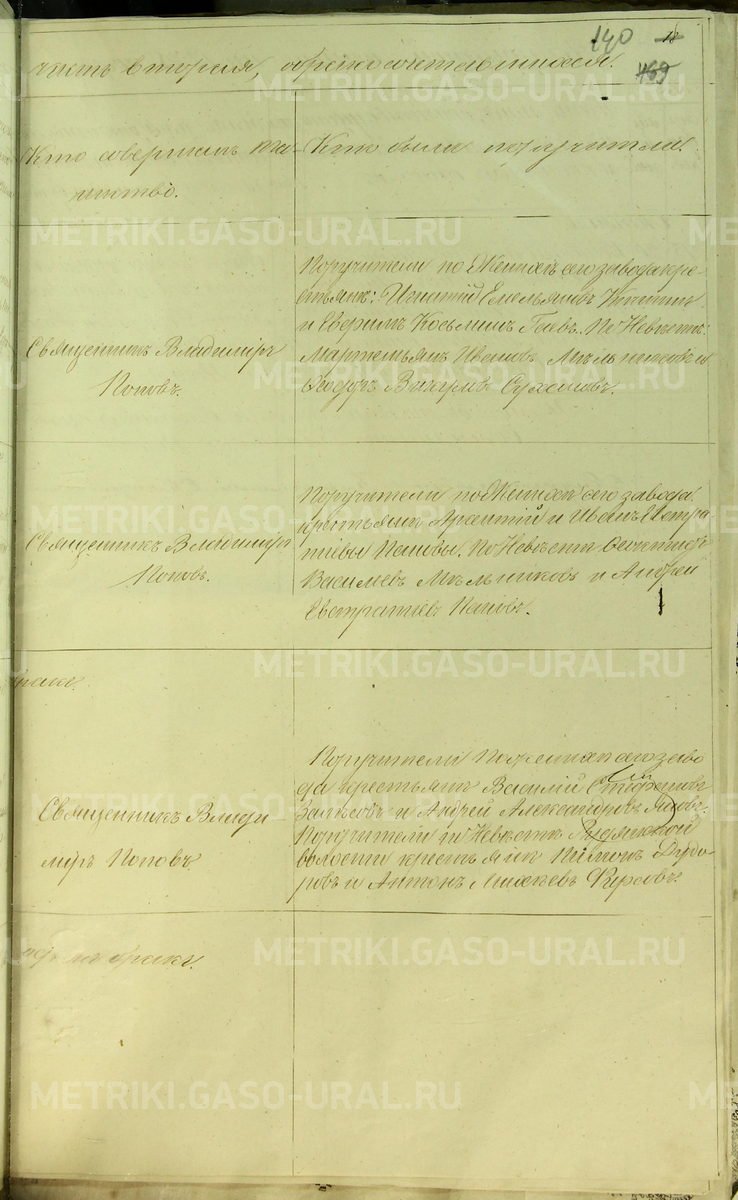 140
169
часть вторая, о бракосочетавшихся.
Кто совершалъ та-
инство.
Кто были поручители.
Священникъ Владиміръ
Поповъ.
Поручители по Женихѣ сего завода кре-
стьяне: Игнатій Емельяновъ
и Ефремъ Косьминъ Гаевъ. По Невѣстѣ:
Мартемьянъ Ивановъ Мѣльниковъ и
Федоръ Сухановъ.
Священникъ Владиміръ
Поповъ.
Поручители по Женихѣ сего завода
крестьяне Арсентій и Иванъ Евстра-
тіевы Пановы. По Невѣстѣ
Василіевъ Мѣльниковъ и Андрей
Евстратіевъ Пановъ.
браки.
Священникъ Влади-
міръ Поповъ.
Поручители по женихѣ сего заво
да крестьяне Василій Стефановъ
и Андрей Александровъ
Поручители по Невѣстѣ
волости крестьяне Пименъ
и Антонъ Фирсовъ.
бракъ.
METRIKI.GASO-URAL.RU